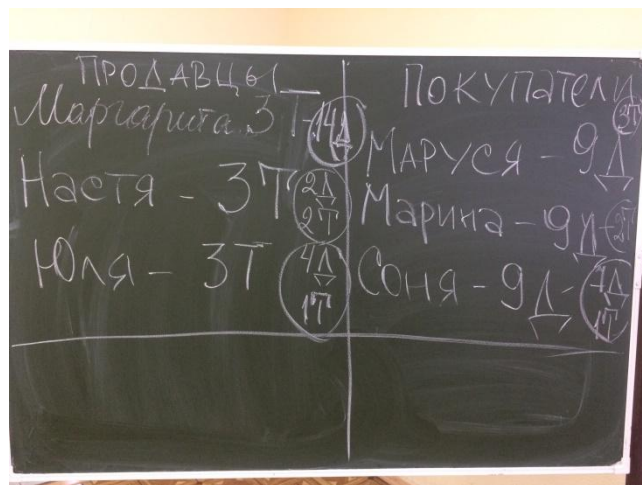 ПРОДАВЦЫ
Маргарита 3Т - 14Д
Настя - 3Т 2Д 2Т
Юля - 3Т 4Д 1Т
ПОКУПАТЕЛИ
3Т
МАРУСЯ - 9Д
Марина - 9Д - 2Т
Соня - 9Д - 4Д 1Т